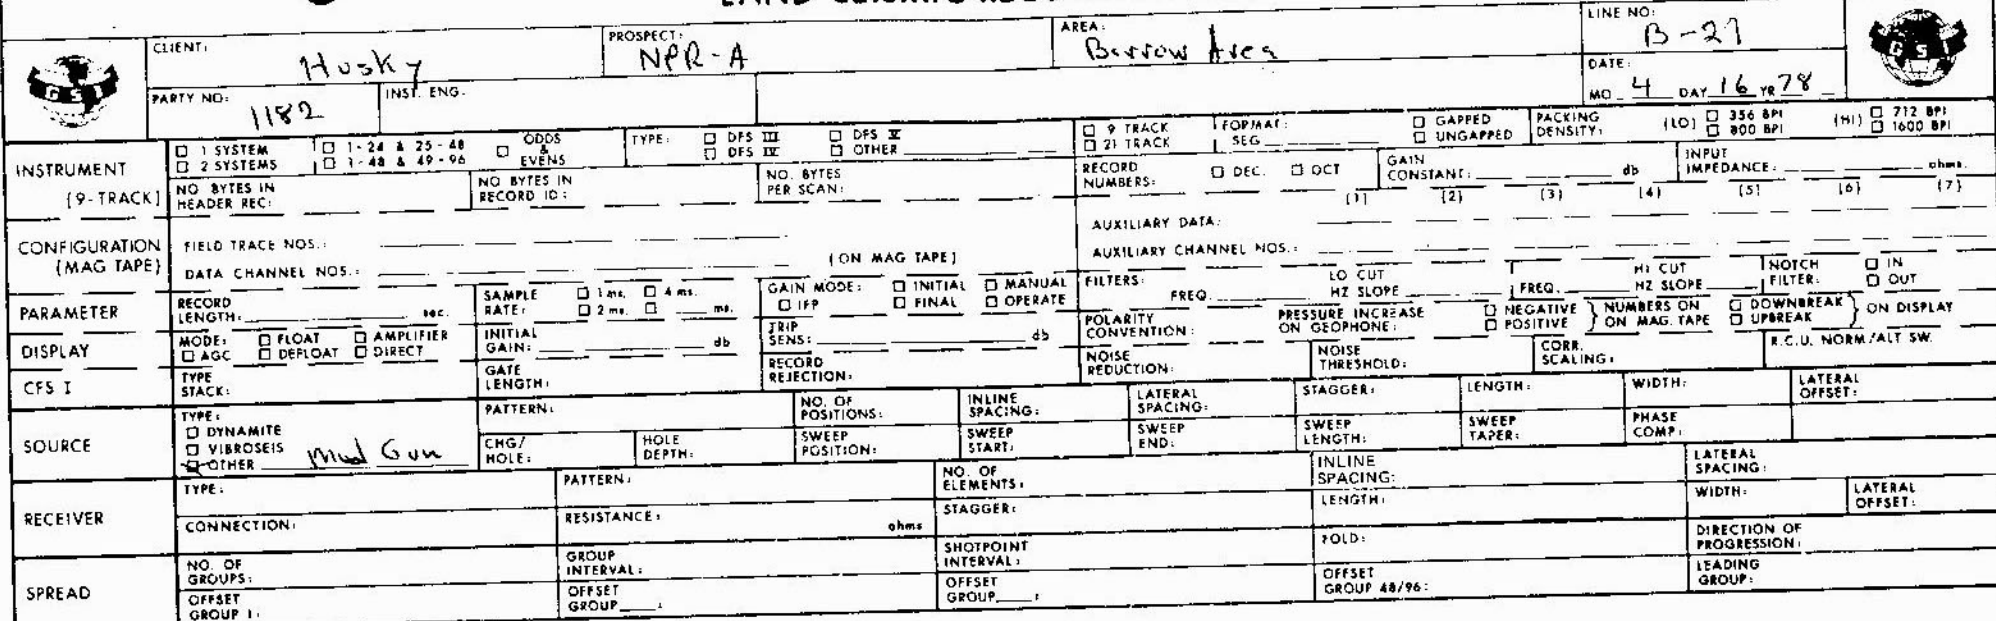 CLIENT: Husky
PROSPECT: NPR-A
AREA: Barrow Area
LINE NO: B-27
GSI
DATE: MO. 4 DAY 16 YR 78
PARTY NO: 1182
INST. ENG.
GSI
INSTRUMENT
(9-TRACK)
1 SYSTEM
2 SYSTEMS
1-24 & 25-48
1-48 & 49-96
ODDS & EVENS
TYPE: DFS III DFS V
DFS IV OTHER
9 TRACK
21 TRACK
FORMAT:
SEG
GAPPED
UNGAPPED
PACKING DENSITY:
(LO) 356 BPI
800 BPI
(HI) 712 BPI
1600 BPI
NO BYTES IN HEADER REC:
NO BYTES IN RECORD ID:
NO. BYTES PER SCAN:
RECORD NUMBERS: DEC. OCT
GAIN CONSTANT: db
INPUT IMPEDANCE: ohms.
(1) (2) (3) (4) (5) (6) (7)
CONFIGURATION
(MAG TAPE)
FIELD TRACE NOS.:
DATA CHANNEL NOS.:
(ON MAG TAPE)
AUXILIARY DATA:
AUXILIARY CHANNEL NOS.:
PARAMETER
RECORD LENGTH: sec.
SAMPLE RATE: 1 ms. 4 ms.
2 ms. ms.
GAIN MODE: INITIAL MANUAL
IFP FINAL OPERATE
FILTERS: FREQ. LO CUT HZ SLOPE
FREQ. HI CUT HZ SLOPE
NOTCH FILTER: IN
OUT
DISPLAY
MODE: FLOAT AMPLIFIER
AGC DEFLOAT DIRECT
INITIAL GAIN: db
TRIP SENS: db
POLARITY CONVENTION:
PRESSURE INCREASE ON GEOPHONE:
NEGATIVE
POSITIVE
NUMBERS ON ON MAG. TAPE
DOWNBREAK
UPBREAK
ON DISPLAY
CFS I
TYPE STACK:
GATE LENGTH:
RECORD REJECTION:
NOISE REDUCTION:
NOISE THRESHOLD:
CORR. SCALING:
R.C.U. NORM/ALT SW.
SOURCE
TYPE:
DYNAMITE
VIBROSEIS
OTHER Mud Gun
PATTERN:
NO. OF POSITIONS:
INLINE SPACING:
LATERAL SPACING:
STAGGER:
LENGTH:
WIDTH:
LATERAL OFFSET:
CHG/ HOLE:
HOLE DEPTH:
SWEEP POSITION:
SWEEP START:
SWEEP END:
SWEEP LENGTH:
SWEEP TAPER:
PHASE COMP:
RECEIVER
TYPE:
PATTERN:
NO. OF ELEMENTS:
INLINE SPACING:
LATERAL SPACING:
CONNECTION:
RESISTANCE: ohms
STAGGER:
LENGTH:
WIDTH:
LATERAL OFFSET:
SPREAD
NO. OF GROUPS:
GROUP INTERVAL:
SHOTPOINT INTERVAL:
FOLD:
DIRECTION OF PROGRESSION:
OFFSET GROUP 1:
OFFSET GROUP :
OFFSET GROUP :
OFFSET GROUP 48/96:
LEADING GROUP: